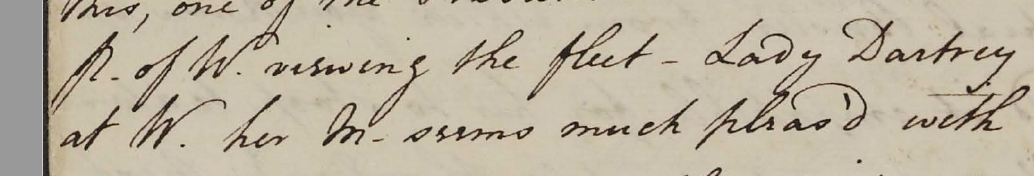 this, one of the
P. of W. viewing the fleet - Lady Dartrey
at W. her M- seems much pleas'd with